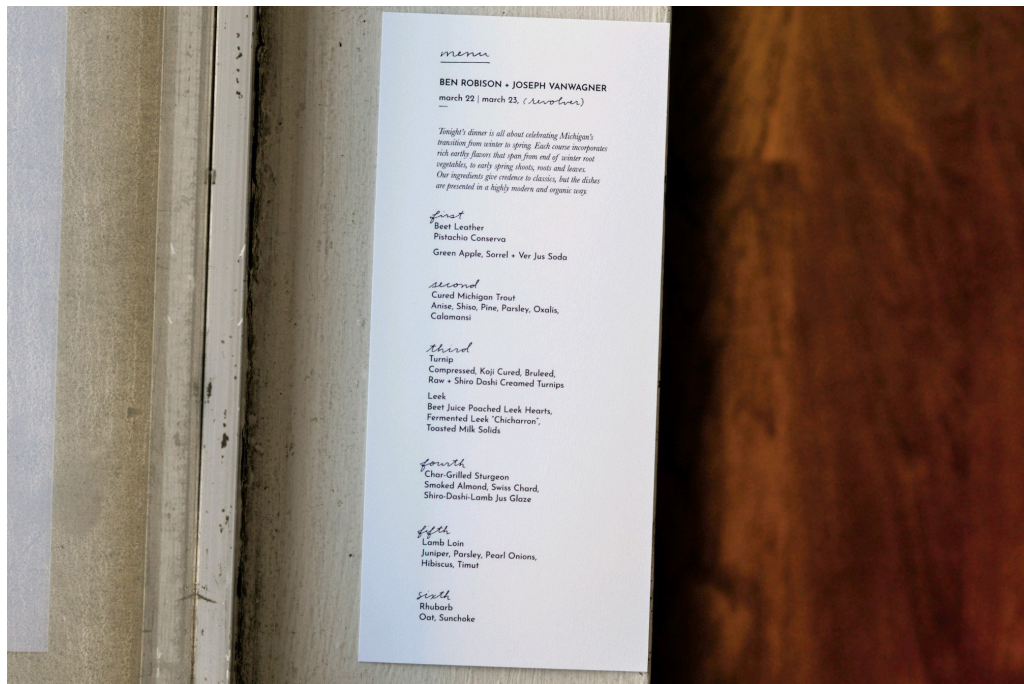 menu
BEN ROBISON + JOSEPH VANWAGNER
march 22 | march 23, (revolver)
Tonight's dinner is all about celebrating Michigan's
transition from winter to spring. Each course incorporates
rich earthy flavors that span from end of winter root
vegetables, to early spring shoots, roots and leaves.
Our ingredients give credence to classics, but the dishes
are presented in a highly modern and organic way.
first
Beet Leather
Pistachio Conserva
Green Apple, Sorrel + Ver Jus Soda
second
Cured Michigan Trout
Anise, Shiso, Pine, Parsley, Oxalis,
Calamansi
third
Turnip
Compressed, Koji Cured, Bruleed,
Raw + Shiro Dashi Creamed Turnips
Leek
Beet Juice Poached Leek Hearts,
Fermented Leek "Chicharron",
Toasted Milk Solids
fourth
Char-Grilled Sturgeon
Smoked Almond, Swiss Chard,
Shiro-Dashi-Lamb Jus Glaze
fifth
Lamb Loin
Juniper, Parsley, Pearl Onions,
Hibiscus, Timut
sixth
Rhubarb
Oat, Sunchoke